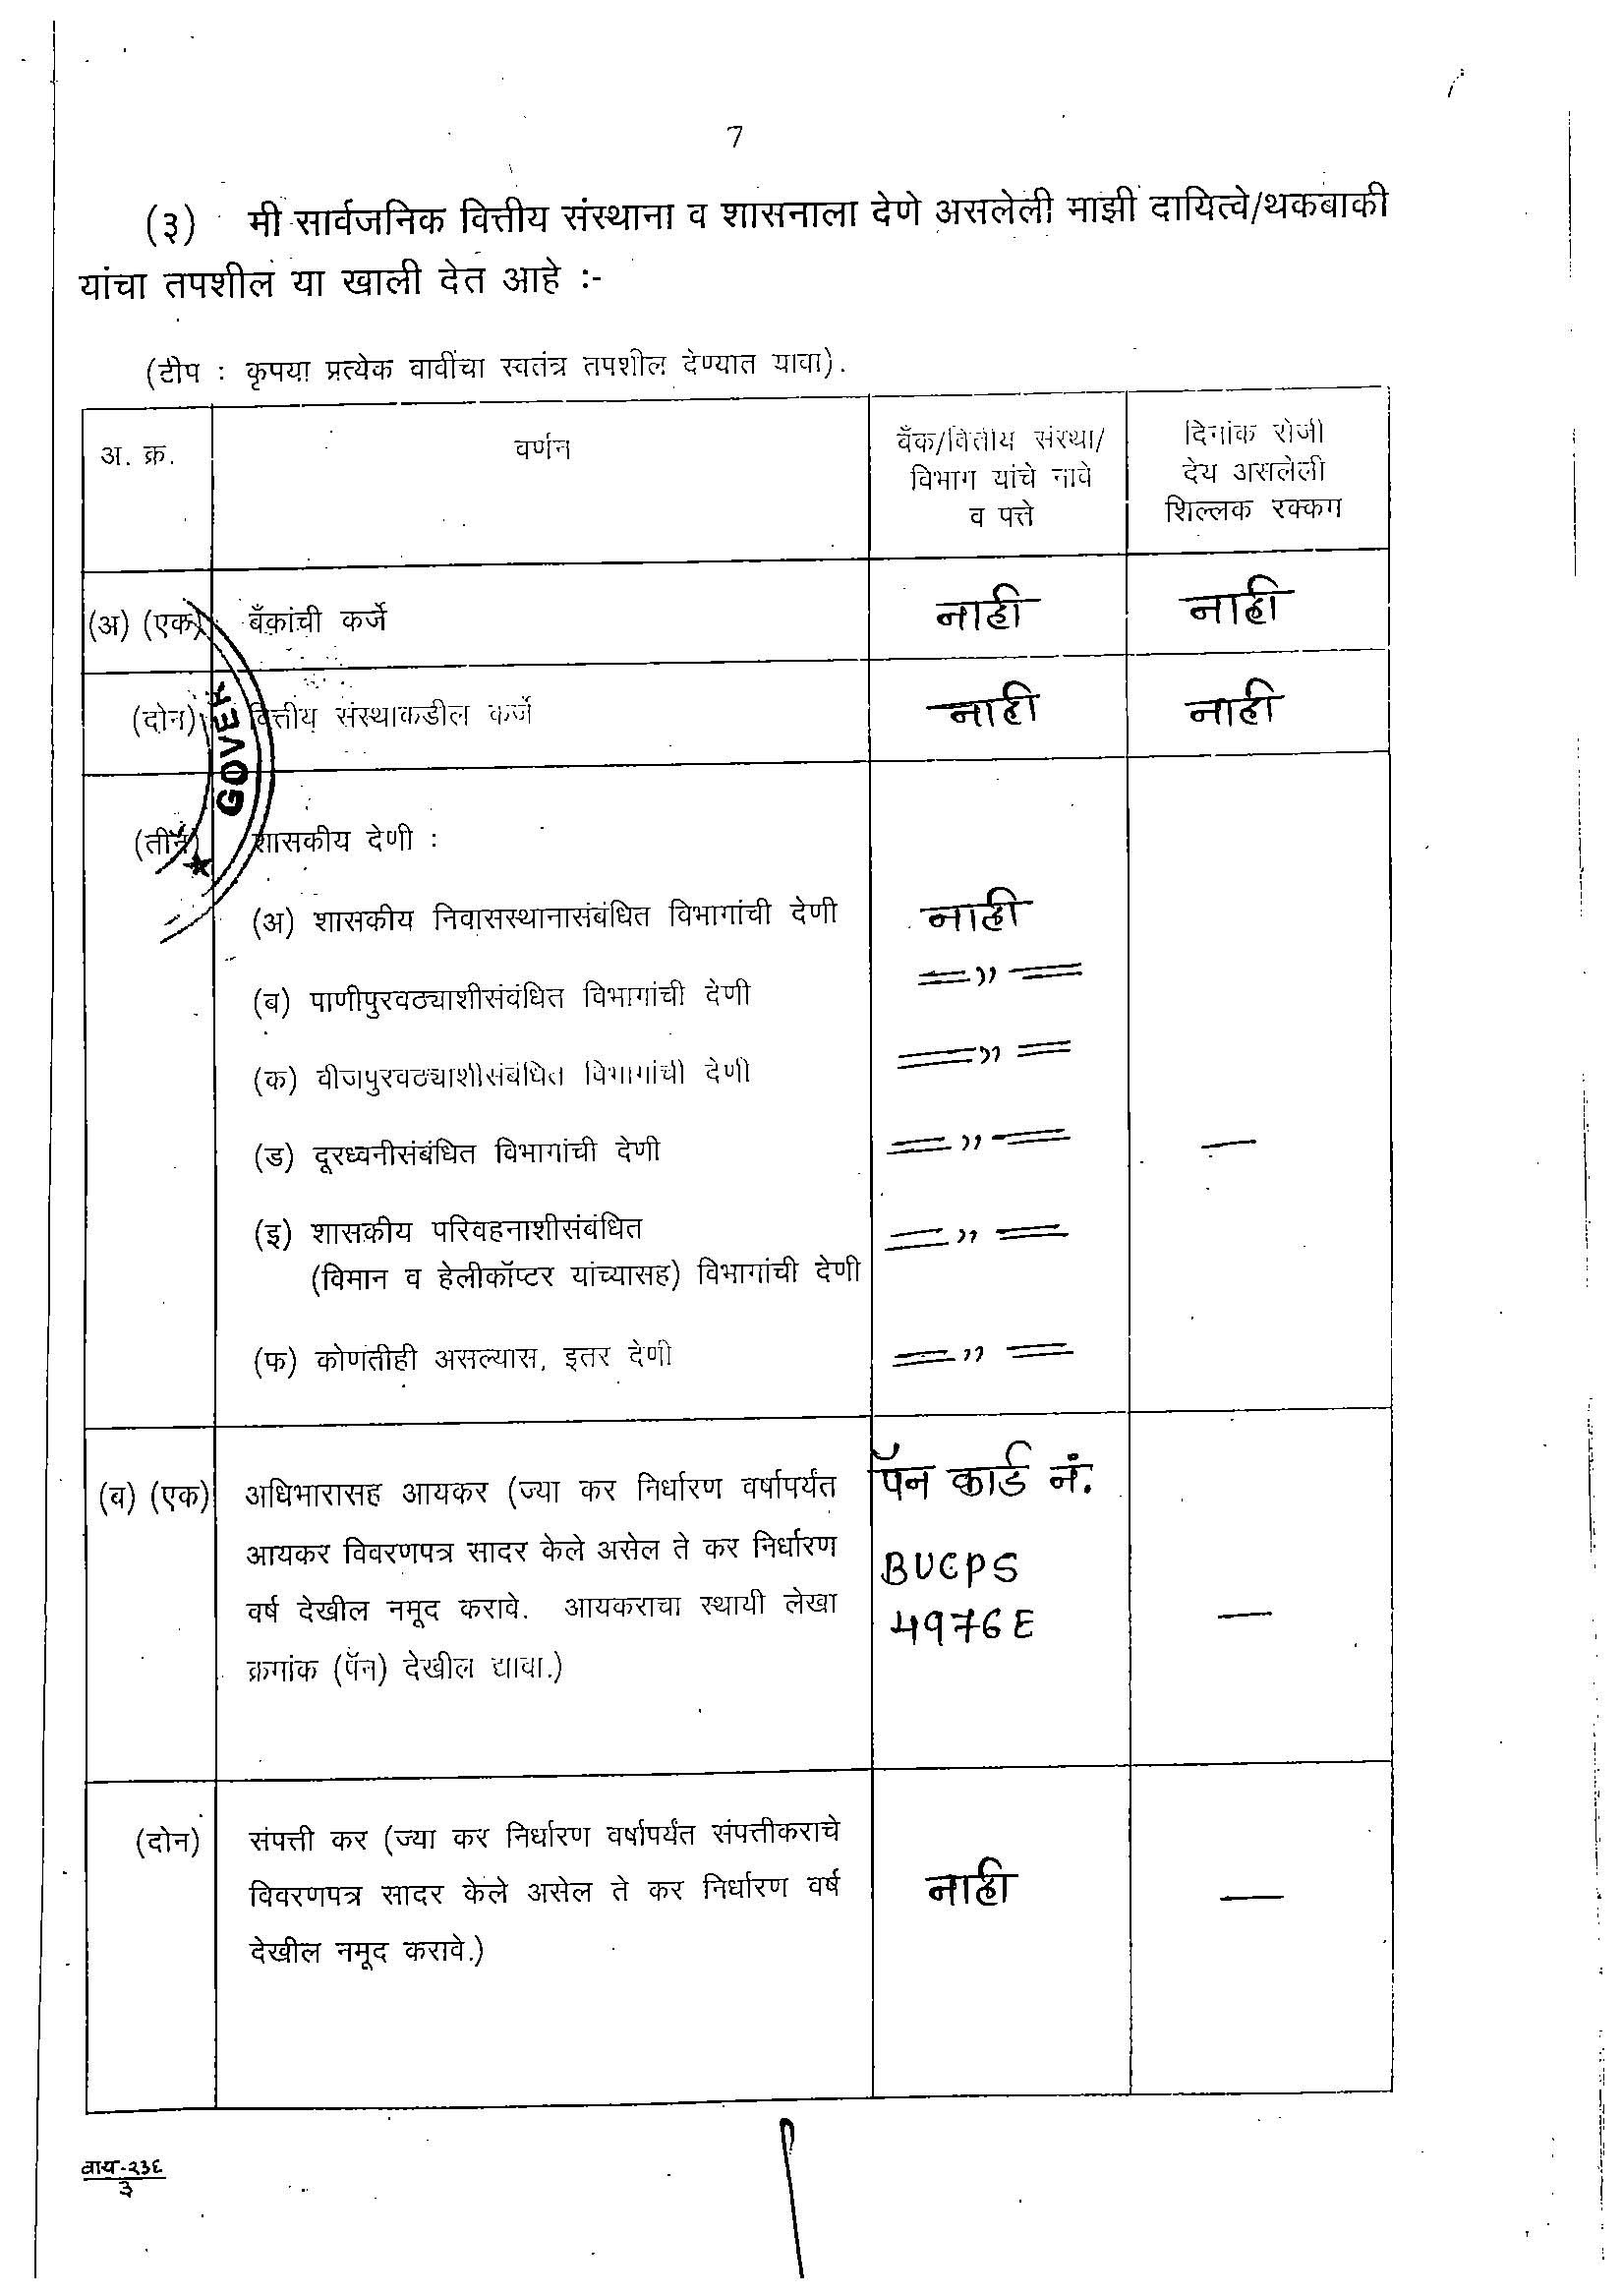 7
(३) मी सार्वजनिक वित्तीय संस्थाना व शासनाला देणे असलेली माझी दायित्वे/थकबाकी
यांचा तपशील या खाली देत आहे :-
(टीप : कृपया प्रत्येक वावींचा स्वतंत्र तपशील देण्यात यावा).
अ. क्र.
वर्णन
बँक/वित्तीय संस्था/
विभाग यांचे नावे
व पत्ते
दिनांक रोजी
देय असलेली
शिल्लक रक्कम
(अ) (एक) बँकांची कर्जे नाही नाही
(दोन) वित्तीय संस्थाकडील कर्जे नाही नाही
GOVER
(तीन) शासकीय देणी :
(अ) शासकीय निवासस्थानासंबंधित विभागांची देणी नाही
(ब) पाणीपुरवठ्याशीसंबंधित विभागांची देणी =〃=
(क) वीजपुरवठ्याशीसंबंधित विभागांची देणी =〃=
(ड) दूरध्वनीसंबंधित विभागांची देणी =〃= —
(इ) शासकीय परिवहनाशीसंबंधित =〃=
(विमान व हेलीकॉप्टर यांच्यासह) विभागांची देणी
(फ) कोणतीही असल्यास, इतर देणी =〃=
(ब) (एक) अधिभारासह आयकर (ज्या कर निर्धारण वर्षापर्यंत पॅन कार्ड नं.
आयकर विवरणपत्र सादर केले असेल ते कर निर्धारण BUCPS
वर्ष देखील नमूद करावे. आयकराचा स्थायी लेखा 4976E —
क्रमांक (पॅन) देखील द्यावा.)
(दोन) संपत्ती कर (ज्या कर निर्धारण वर्षापर्यंत संपत्तीकराचे
विवरणपत्र सादर केले असेल ते कर निर्धारण वर्ष नाही —
देखील नमूद करावे.)
वाय-२३६
३